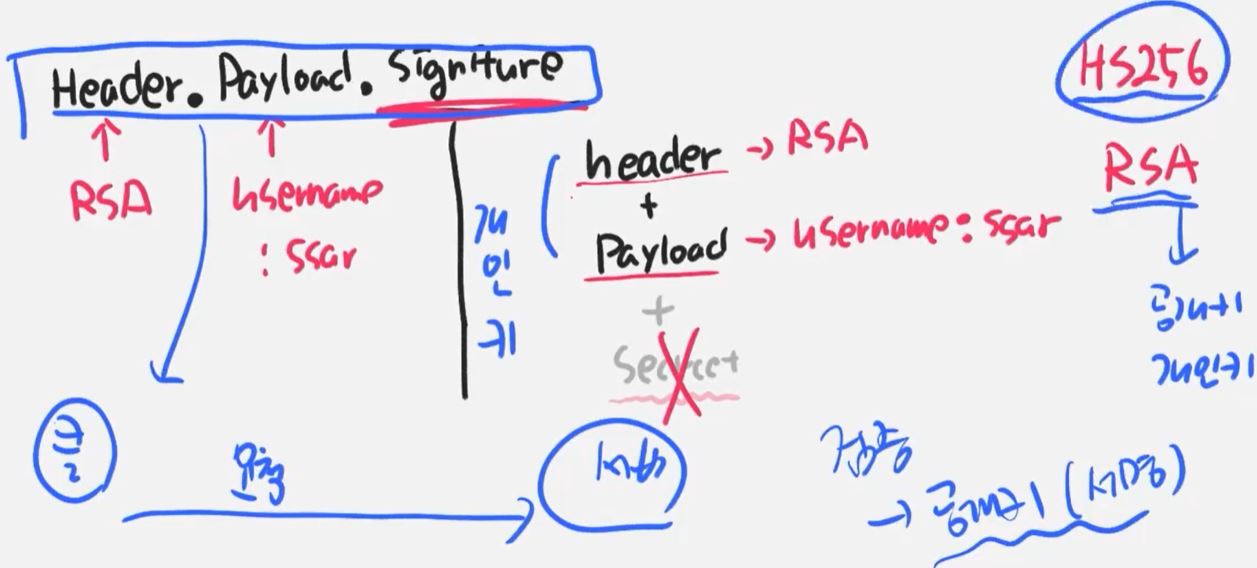 Header. Payload. Signiture
HS256
RSA
username
: ssar
개
인
키
header → RSA
+
Payload → username: ssar
+
Secret
RSA
공개키
개인키
클
요청
서버
검증
→ 공개키 (서명)